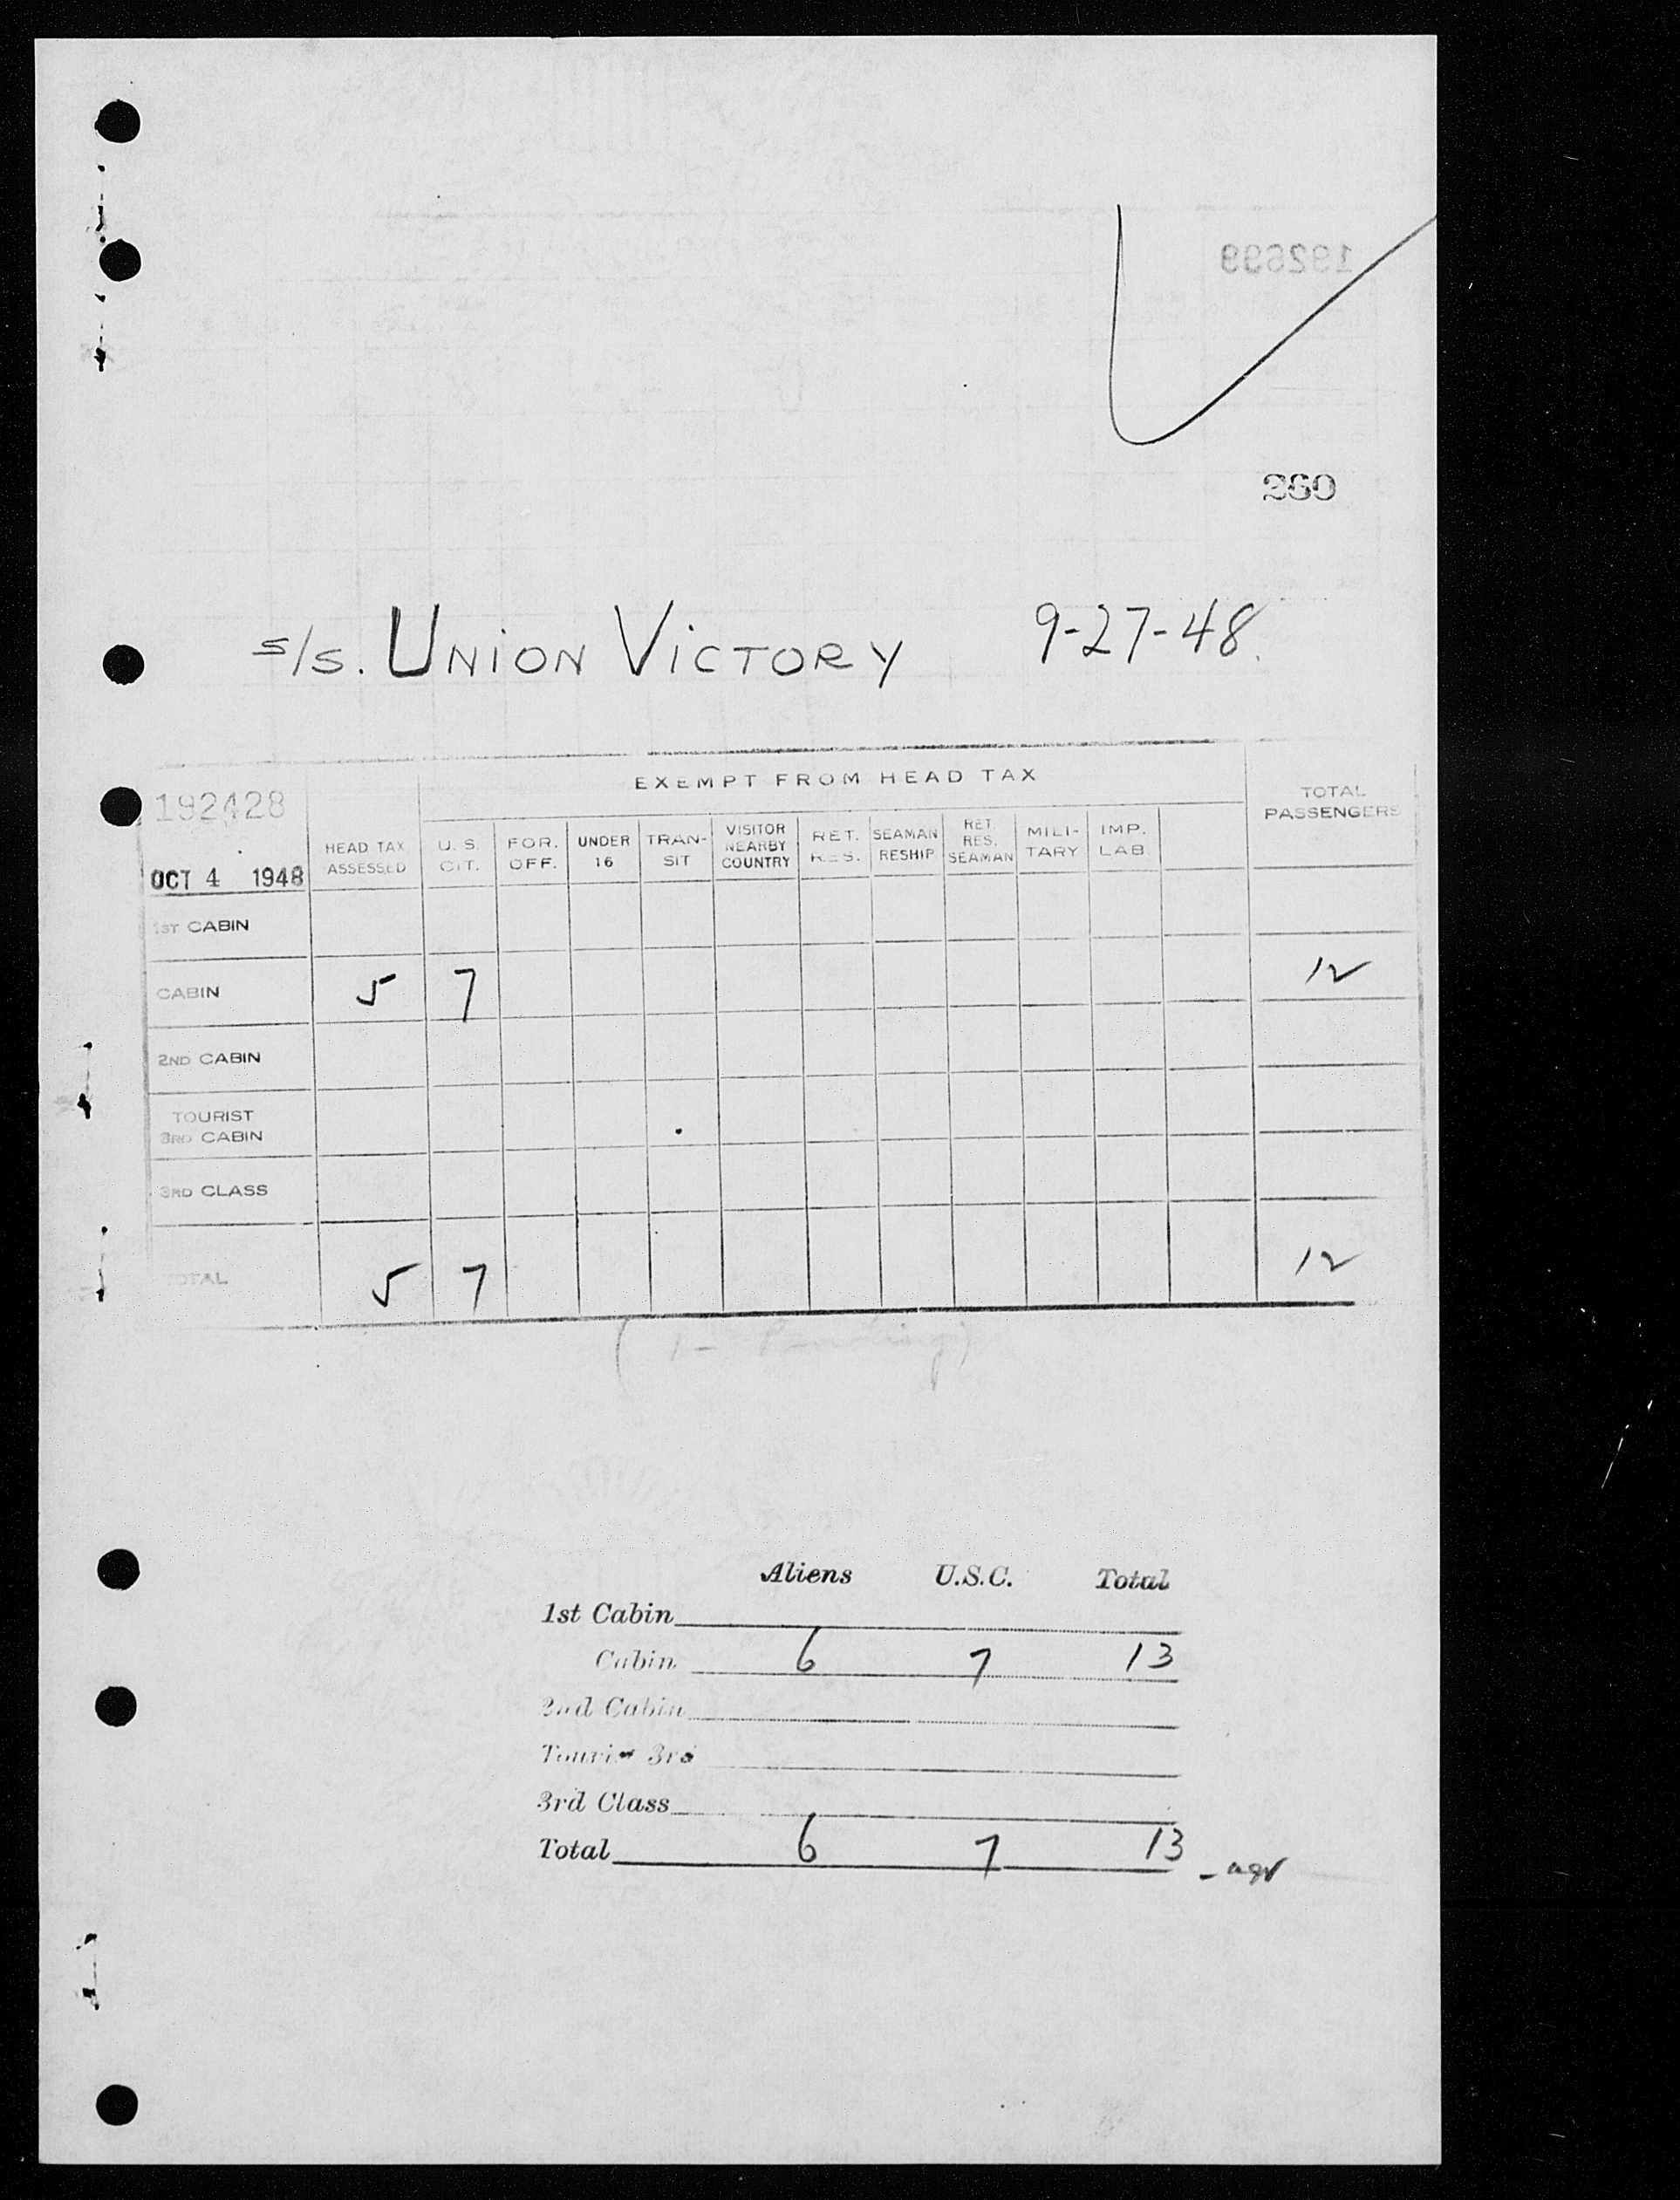 260
s/s. UNION VICTORY 9-27-48.
EXEMPT FROM HEAD TAX
192428
OCT 4 1948
HEAD TAX ASSESSED
U. S. CIT.
FOR. OFF.
UNDER 16
TRAN- SIT
VISITOR NEARBY COUNTRY
RET. RES.
SEAMAN RESHIP
RET. RES. SEAMAN
MILI- TARY
IMP. LAB.
TOTAL PASSENGERS
1ST CABIN
CABIN 5 7 12
2ND CABIN
TOURIST
3RD CABIN
3RD CLASS
TOTAL 5 7 12
(1- Pending)
Aliens U.S.C. Total
1st Cabin
Cabin 6 7 13
2nd Cabin
Tourist 3rd
3rd Class
Total 6 7 13